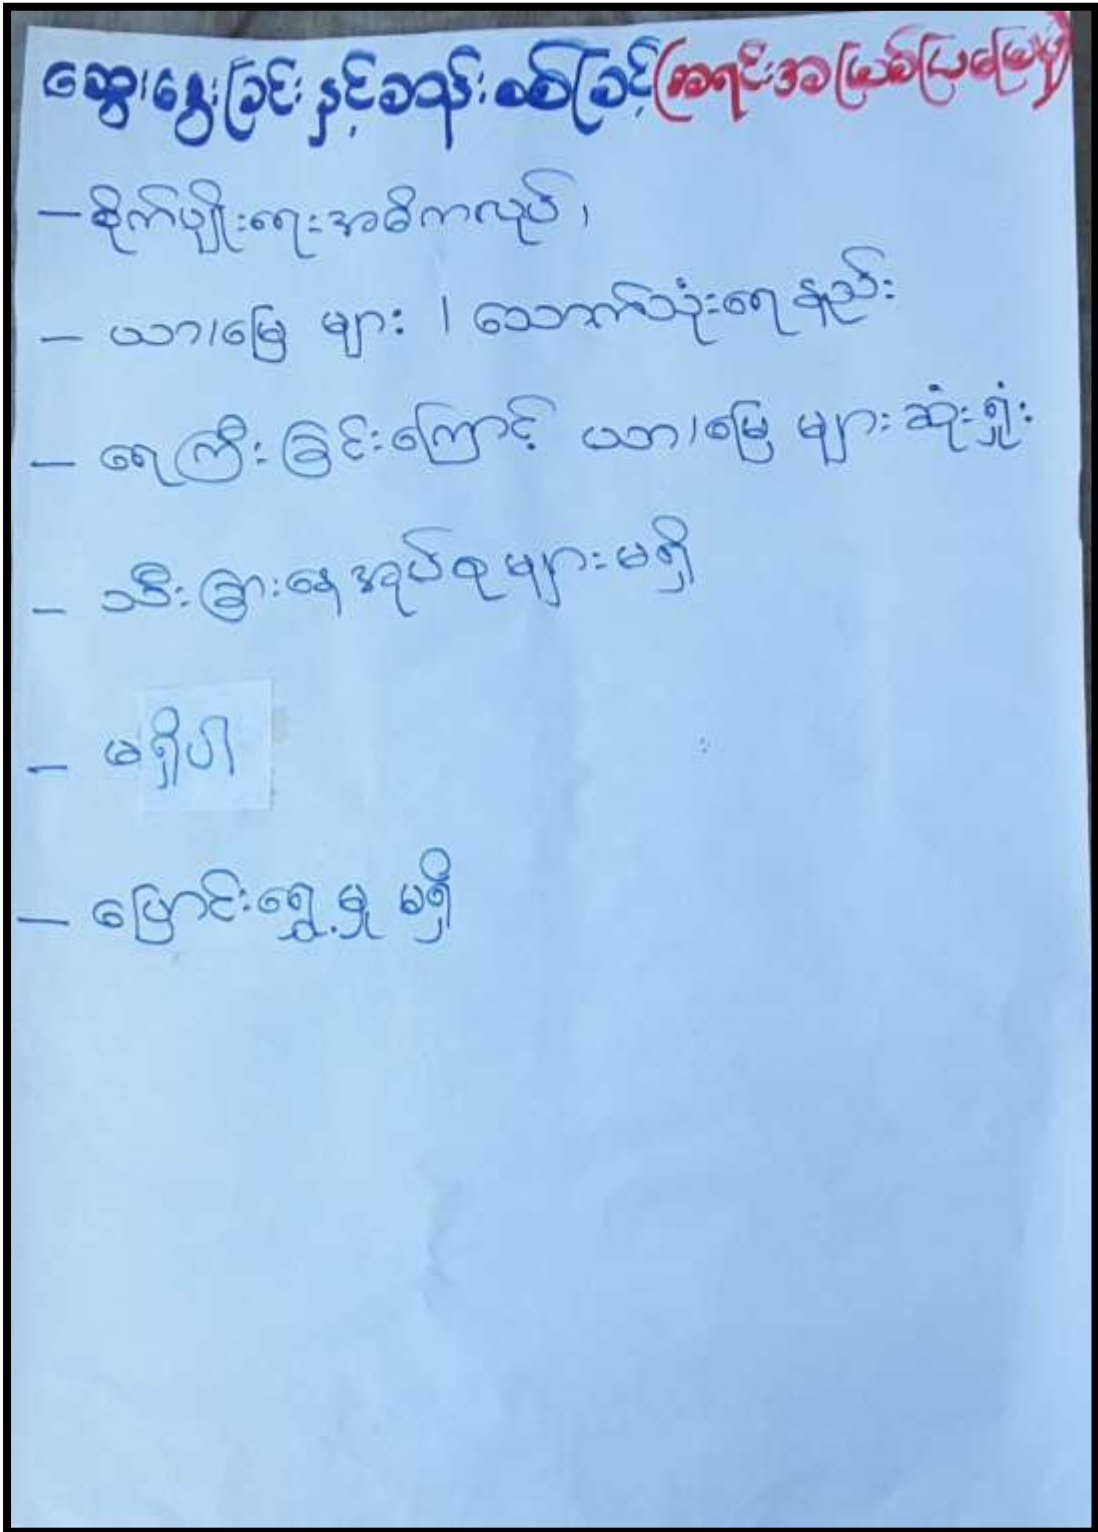 ဆွေးနွေးခြင်းနှင့်ဆန်းစစ်ခြင်း(အရင်းအမြစ်ပြမြေပုံ)
– စိုက်ပျိုးရေးအဓိကလုပ်၊
– ယာ/မြေ များ / သောက်သုံးရေနည်း
– ရေကြီးခြင်းကြောင့် ယာ/မြေ များဆုံးရှုံး
– သီးခြားနေအုပ်စုများမရှိ
– မရှိပါ
– ပြောင်းရွှေ့မှု မရှိ